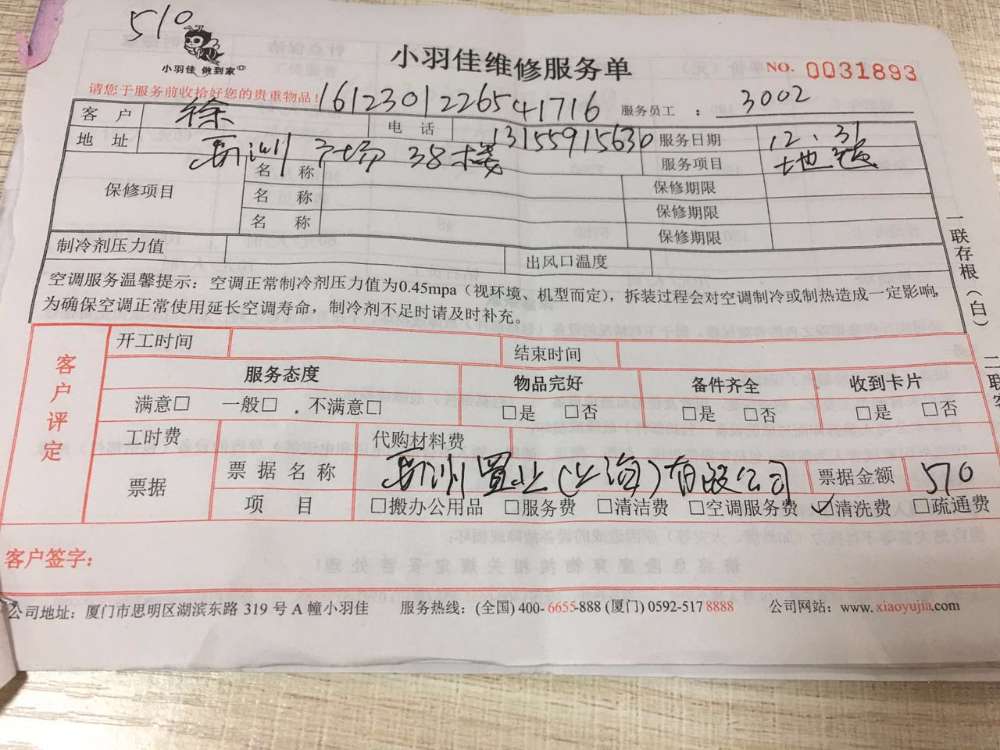 510
小羽佳 做到家
小羽佳维修服务单
NO. 0031893
请您于服务前收拾好您的贵重物品!
1612301226541716
服务员工 : 3002
客 户 徐 电 话 13155915630 服务日期 12.31
地 址 广场 38楼 服务项目 地毯
保修项目 名 称 保修期限
名 称 保修期限
名 称 保修期限
制冷剂压力值 出风口温度
空调服务温馨提示：空调正常制冷剂压力值为0.45mpa（视环境、机型而定），拆装过程会对空调制冷或制热造成一定影响，
为确保空调正常使用延长空调寿命，制冷剂不足时请及时补充。
一联存根（白）
二联
客户评定
开工时间 结束时间
服务态度 物品完好 备件齐全 收到卡片
满意□ 一般□ 不满意□ □是 □否 □是 □否 □是 □否
工时费 代购材料费
票据 票据名称 置业(上海)有限公司 票据金额 510
项 目 □搬办公用品 □服务费 □清洁费 □空调服务费 ☑清洗费 □疏通费
客户签字：
公司地址：厦门市思明区湖滨东路 319 号 A 幢小羽佳 服务热线：(全国) 400-6655-888 (厦门) 0592-517 8888 公司网站：www.xiaoyujia.com